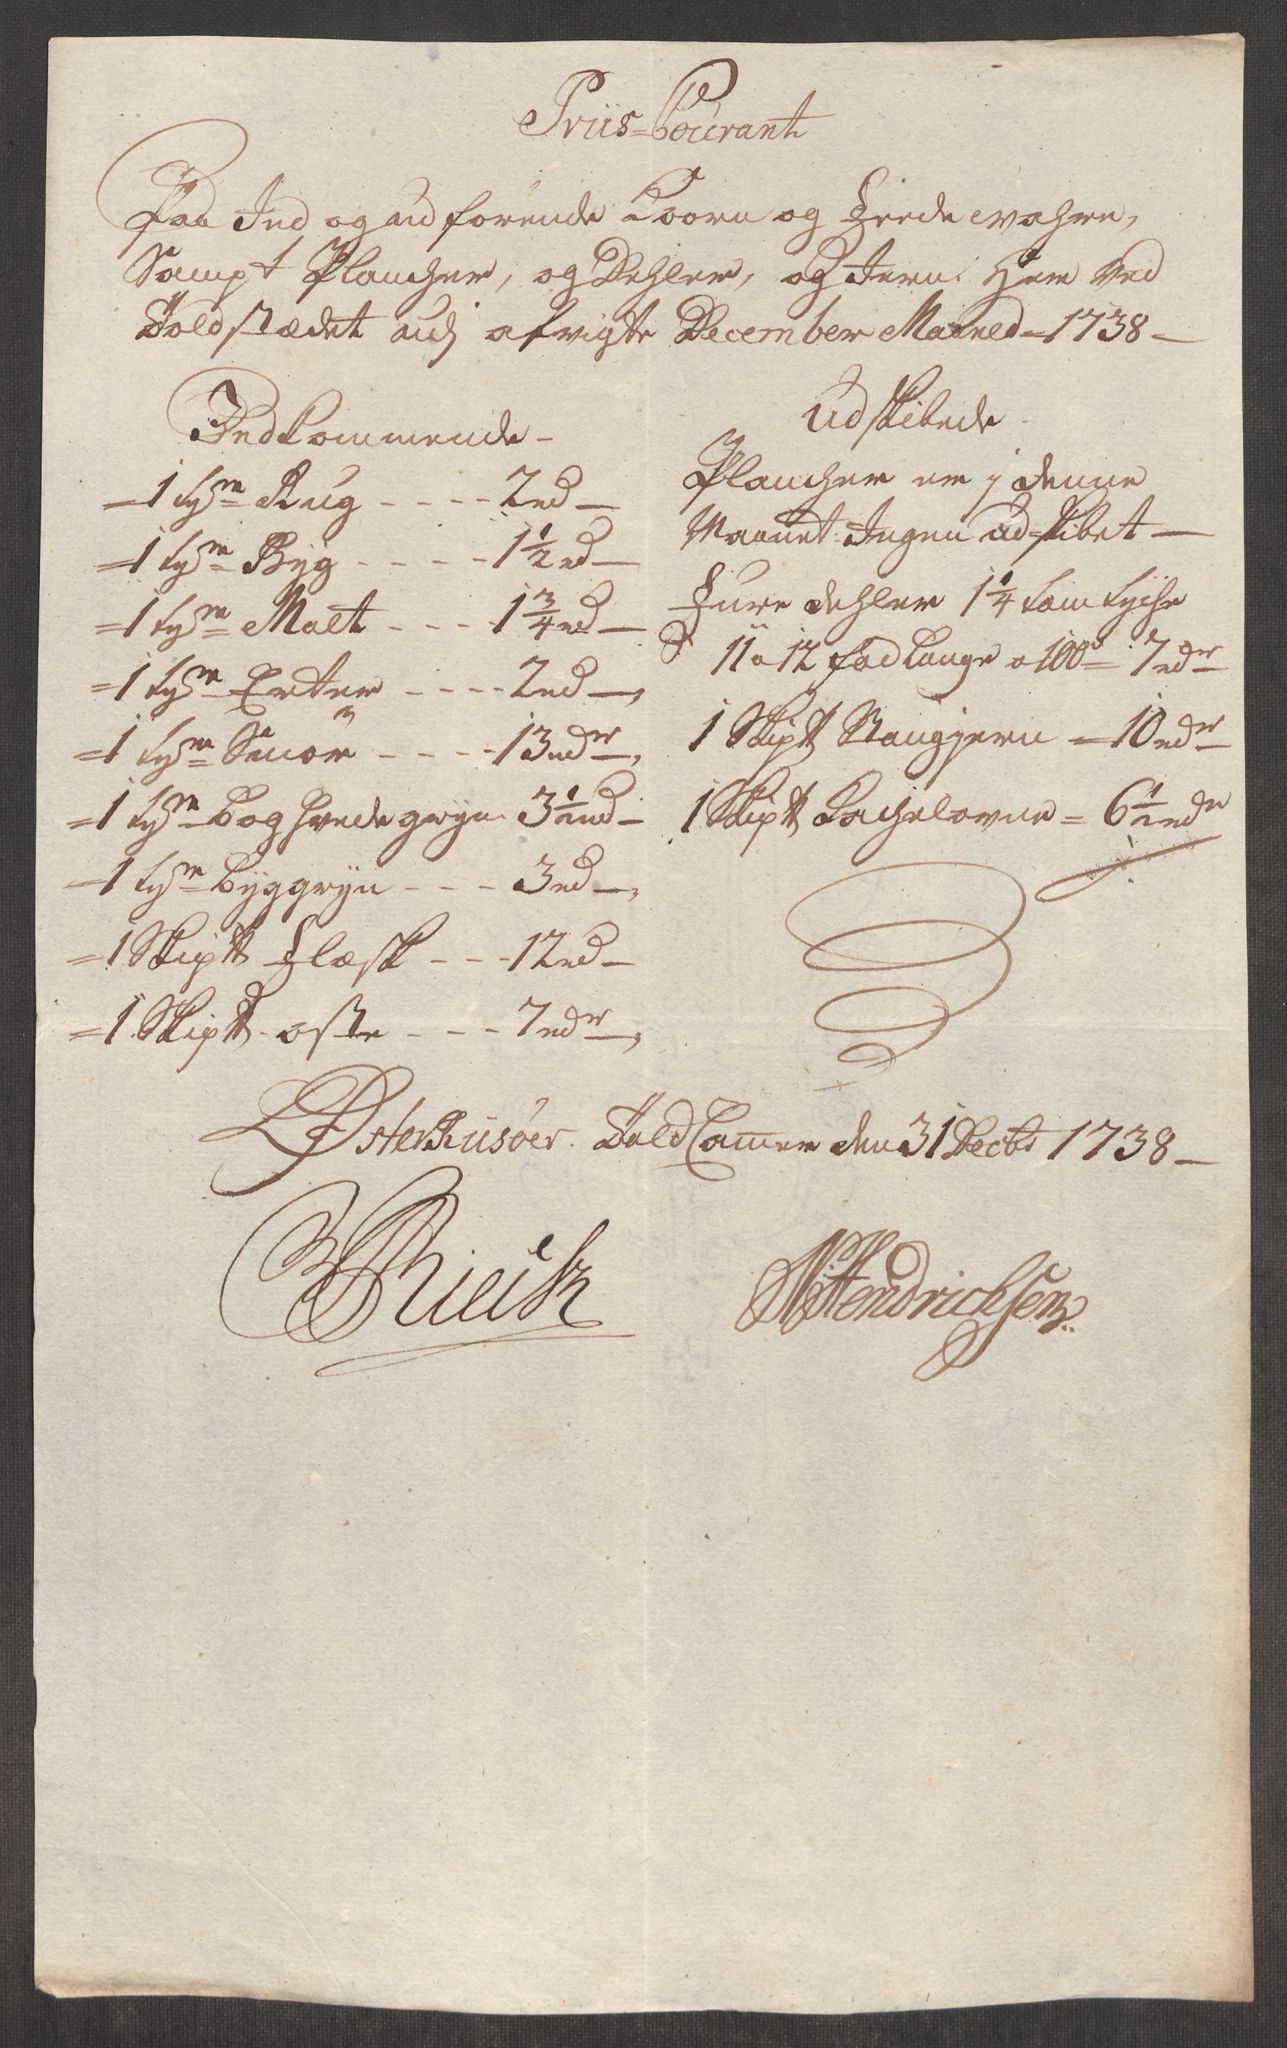 Priis-Courant
Paa Ind og ud förende Koorn og Feede wahre,
Sampt Plancher, og Dehler, og Jern: Her ved
Toldstædet udj afvigte December Maaned - 1738 -
Indkommende -
- 1 tyne Rug - - - - 2 rd -
= 1 tyne Byg - - - - 1 1/2 rd -
= 1 tyne Malt - - - 1 3/4 rd -
= 1 tyne Erter - - - - 2 rd -,
= 1 tyne Smör - - - - 13 rdr -,
= 1 tyne Boghvedegryn 3 1/2 rd -
= 1 tyne Byggryn - - - 3 rd -,
= 1 Skiptt Flæsk - - - 12 rd -
= 1 Skiptt oste - - - 7 rdr -,
Udskibede -
Plancher er j denne
Maanet Ingen ud-skibet -
Furedehler 1 1/4 tom tyche
11 a 12 fod lange a 100d = 7 rdr
1 Skiptt Stangjern = 10 rdr
1 Skiptt Kachelovne = 6 1/2 rdr
Østerriisöer Told Camer den 31 Decbr 1738 -
NHendrichsen